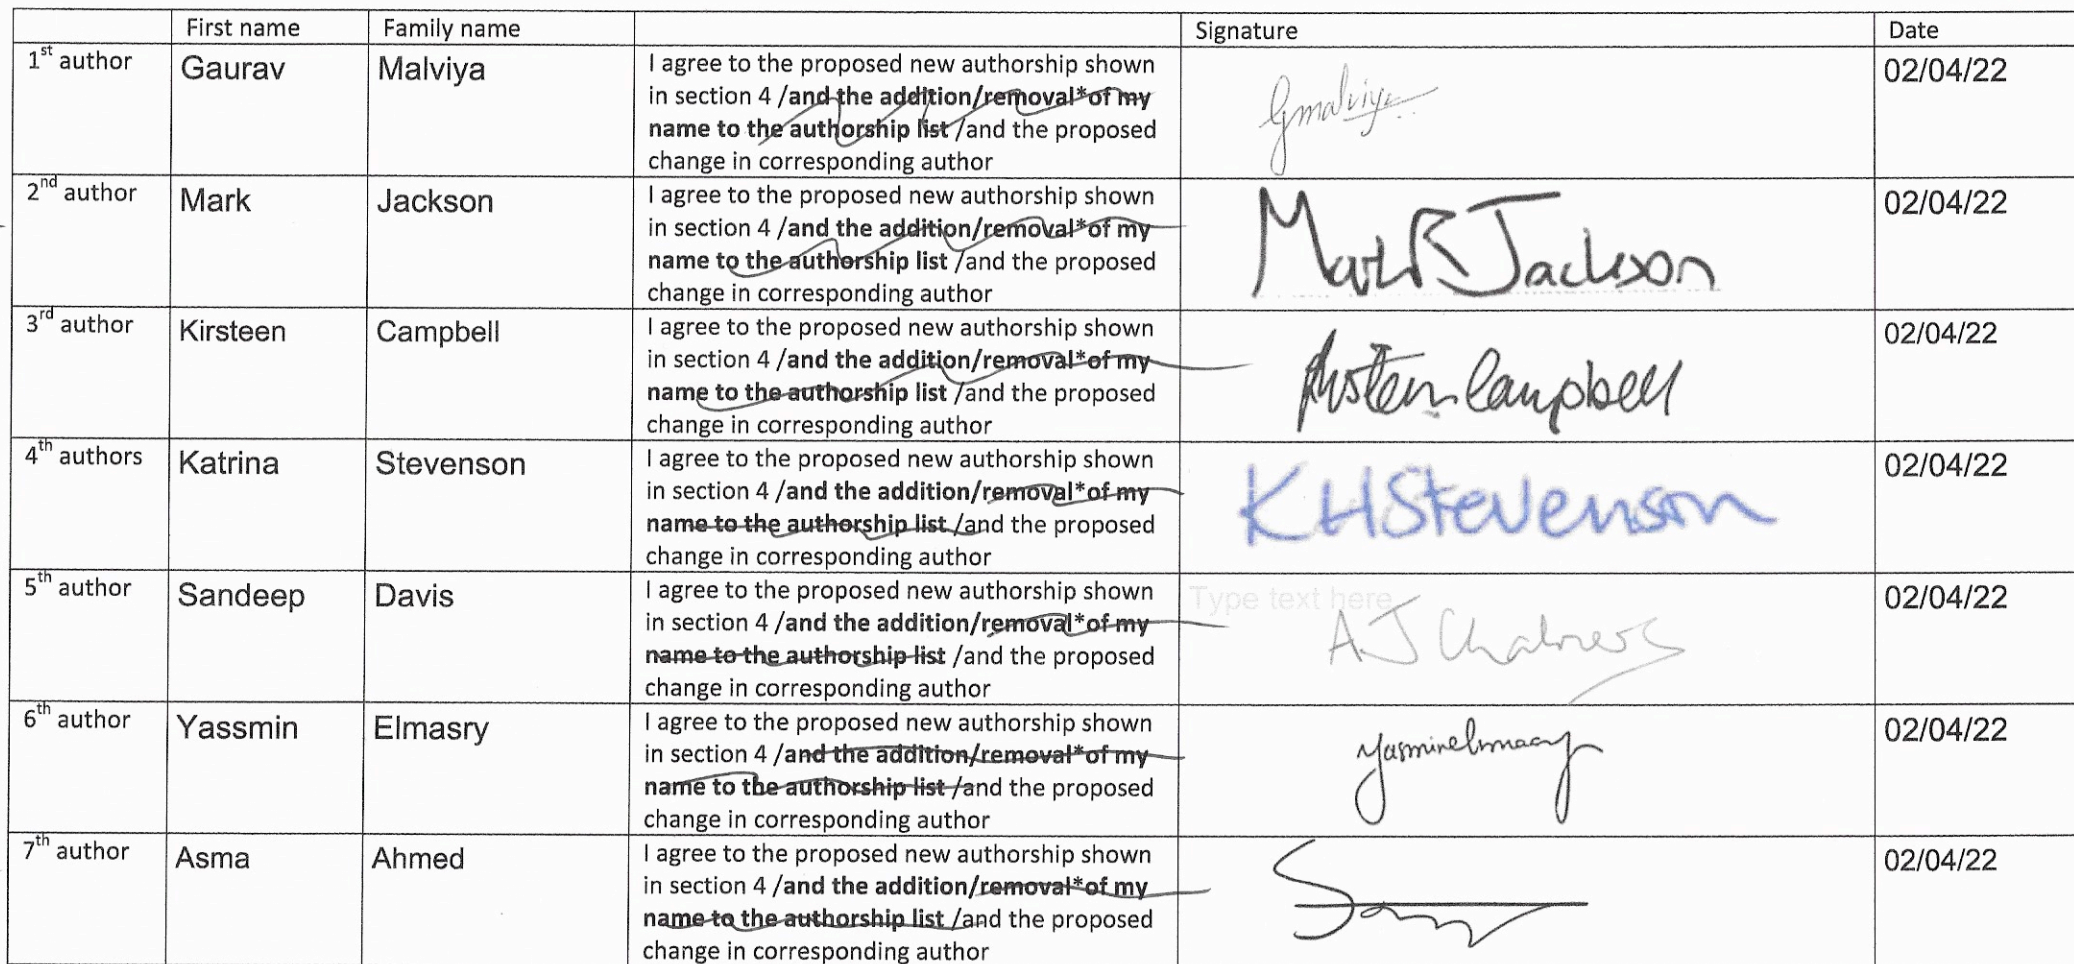 First name Family name Signature Date
1st author Gaurav Malviya I agree to the proposed new authorship shown 02/04/22
in section 4 /and the addition/removal*of my
name to the authorship list /and the proposed
change in corresponding author
Gmalviya
2nd author Mark Jackson I agree to the proposed new authorship shown 02/04/22
in section 4 /and the addition/removal*of my
name to the authorship list /and the proposed
change in corresponding author
Mark R Jackson
3rd author Kirsteen Campbell I agree to the proposed new authorship shown 02/04/22
in section 4 /and the addition/removal*of my
name to the authorship list /and the proposed
change in corresponding author
Kirsteen Campbell
4th authors Katrina Stevenson I agree to the proposed new authorship shown 02/04/22
in section 4 /and the addition/removal*of my
name to the authorship list /and the proposed
change in corresponding author
KHStevenson
5th author Sandeep Davis I agree to the proposed new authorship shown Type text here 02/04/22
in section 4 /and the addition/removal*of my
name to the authorship list /and the proposed
change in corresponding author
AJ Chalmers
6th author Yassmin Elmasry I agree to the proposed new authorship shown 02/04/22
in section 4 /and the addition/removal*of my
name to the authorship list /and the proposed
change in corresponding author
yasminelmasry
7th author Asma Ahmed I agree to the proposed new authorship shown 02/04/22
in section 4 /and the addition/removal*of my
name to the authorship list /and the proposed
change in corresponding author